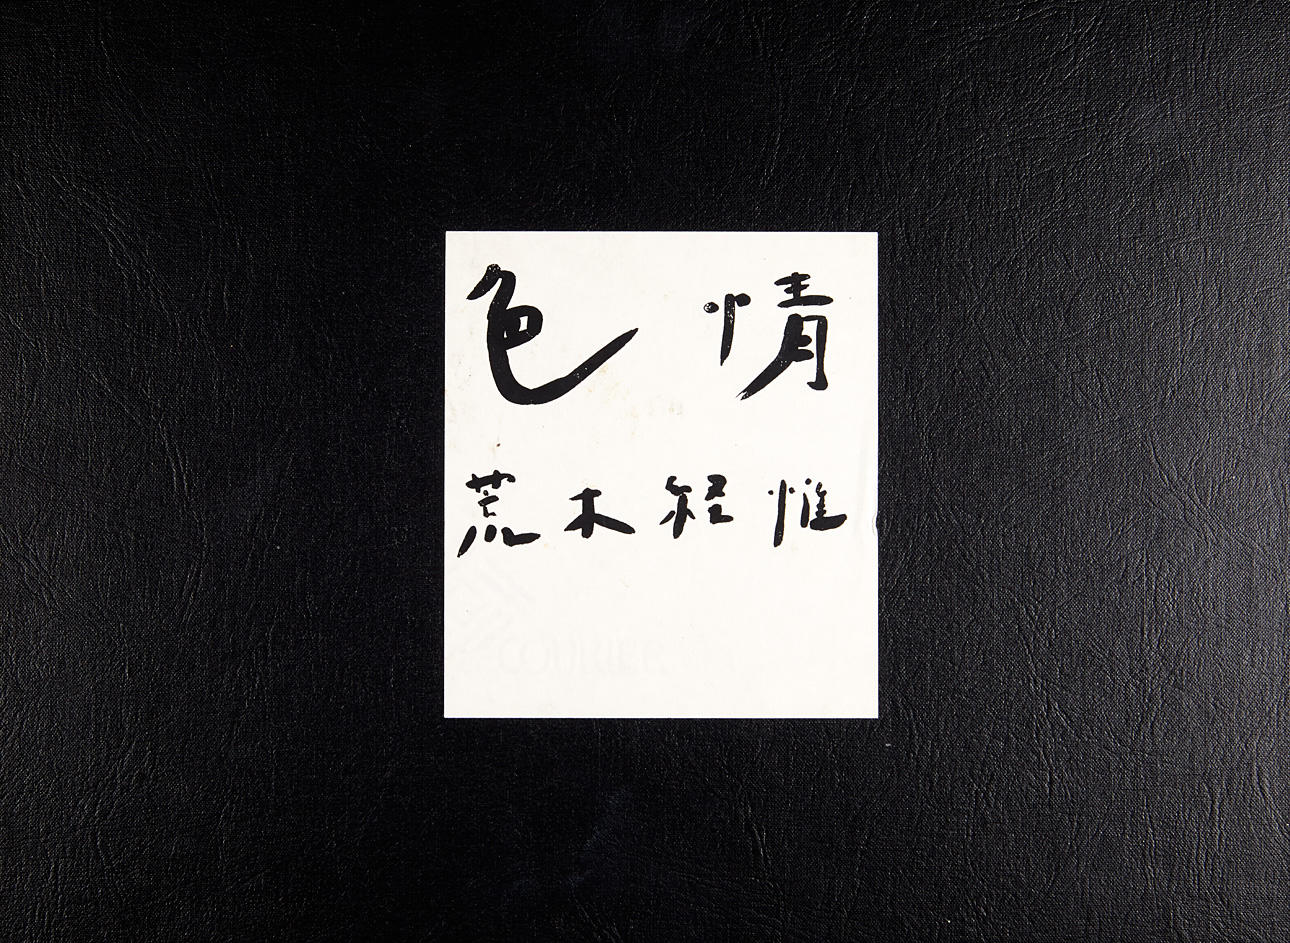 色情
荒木経惟
COURIER